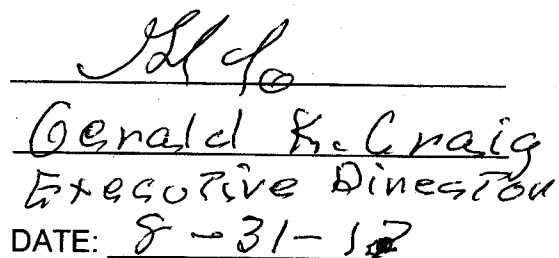 Gerald K. Craig
Executive Director
DATE: 8-31-12